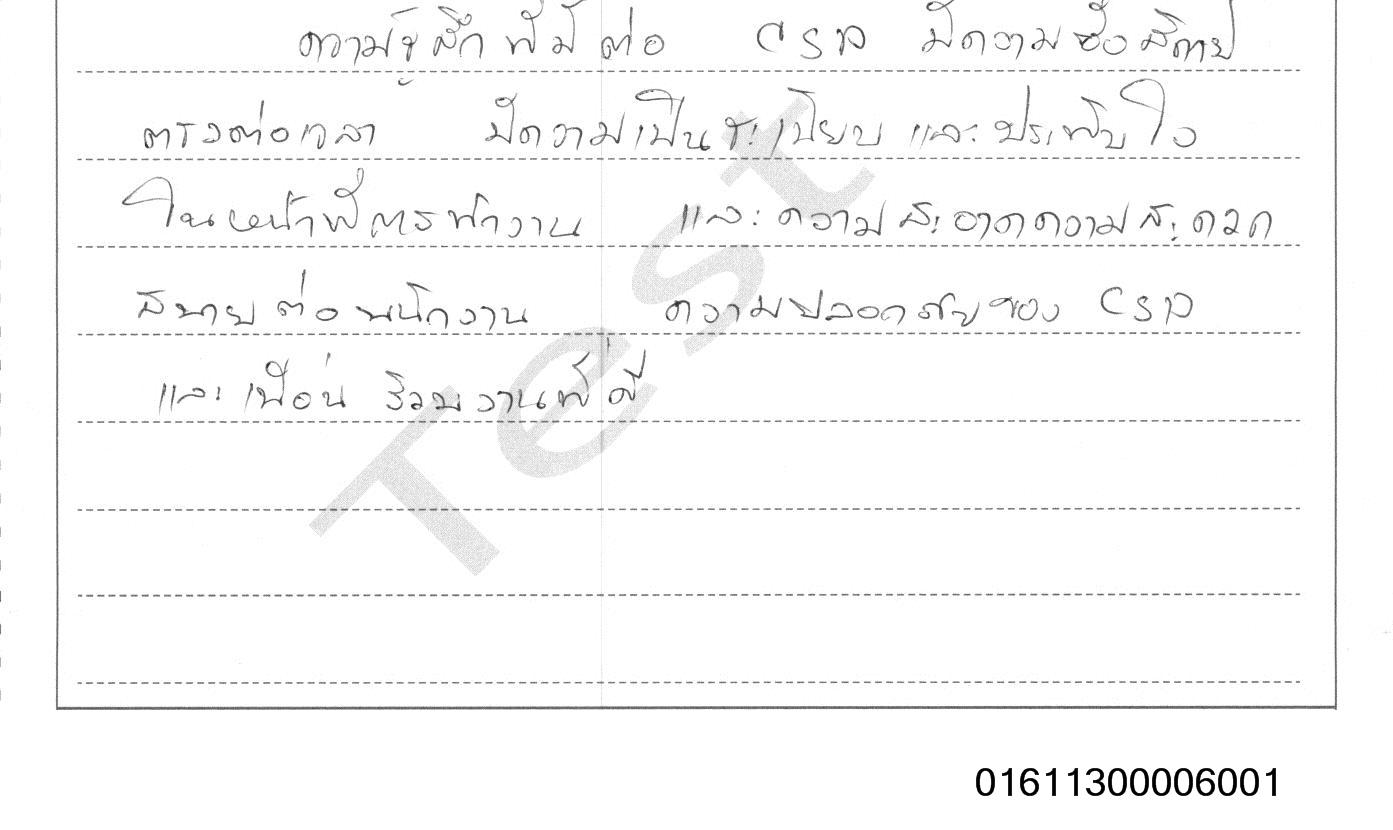 ความรู้สึกที่มีต่อ CSP มีความซื่อสัตย์
ตรงต่อเวลา มีความเป็นระเบียบ และประทับใจ
ในหน้าที่การทำงาน และความสะอาดความสะดวก
สบายต่อพนักงาน ความปลอดภัยของ CSP
และเพื่อนร่วมงานที่ดี
Test
01611300006001